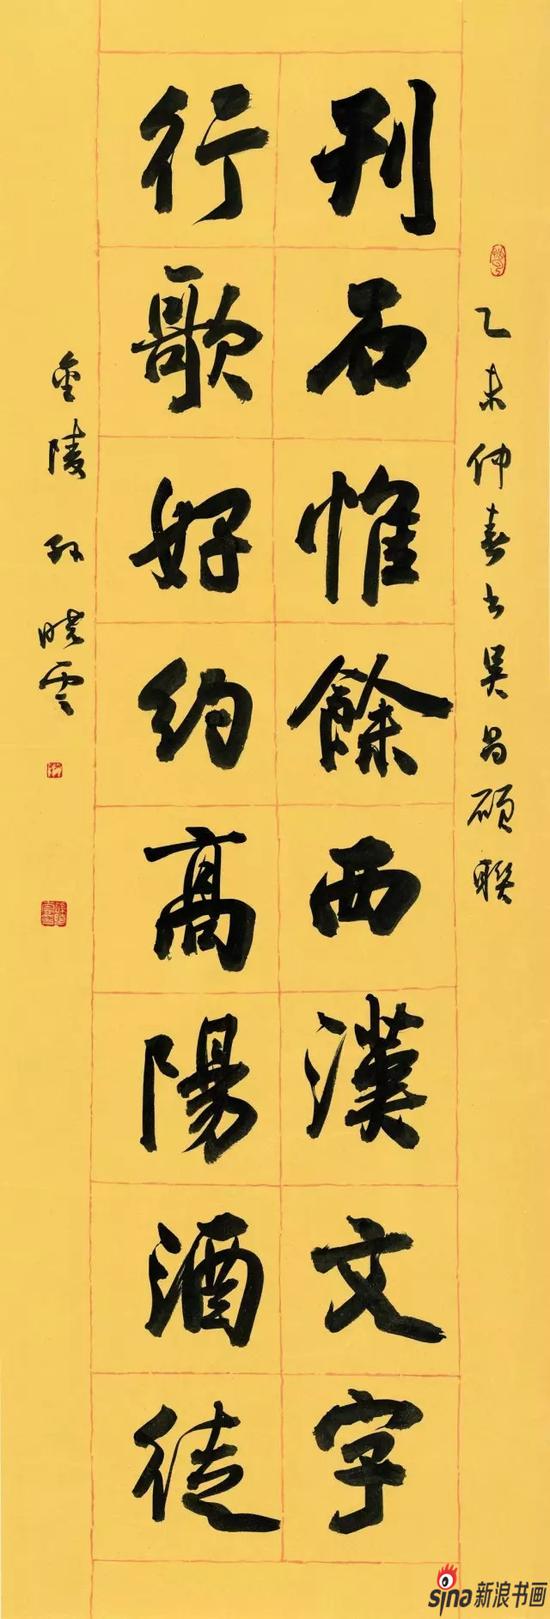 乙未仲春書吳昌碩聯
刊石惟餘西漢文字
行歌好約高陽酒徒
金陵孫曉雲
sina新浪书画